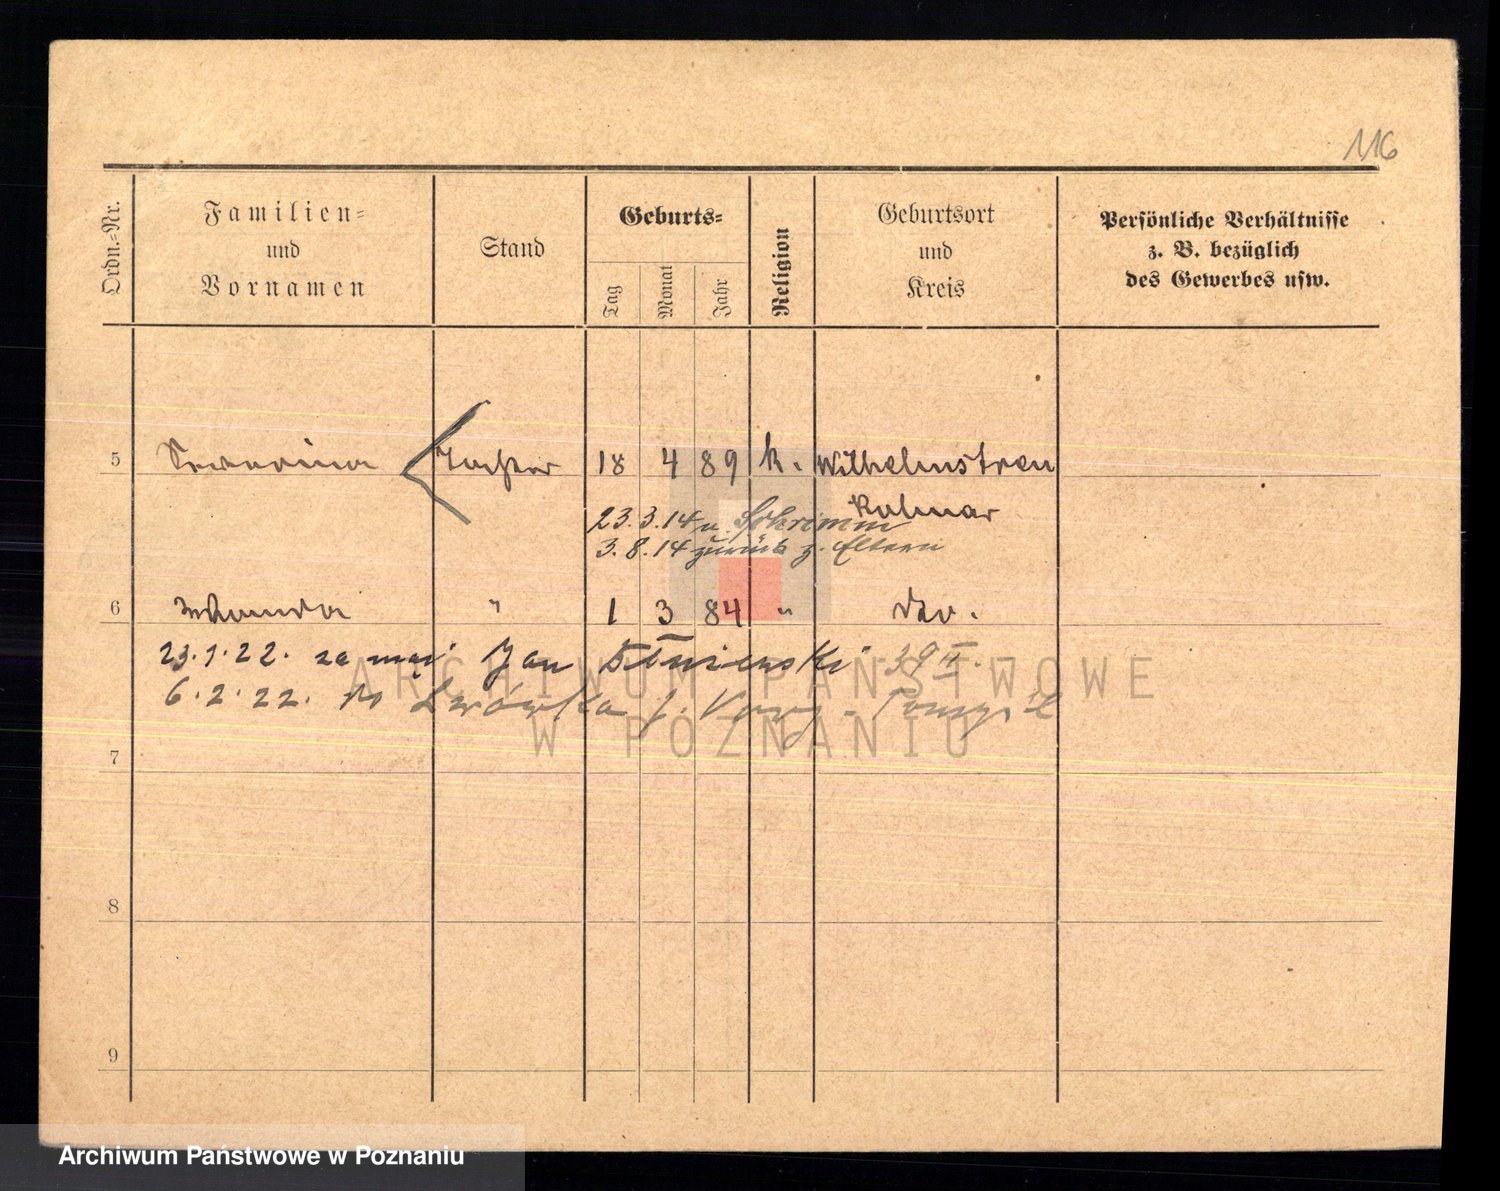 116
Ordn.-Nr.
Familien-
und
Vornamen
Stand
Geburts-
Tag
Monat
Jahr
Religion
Geburtsort
und
Kreis
Persönliche Verhältnisse
z. B. bezüglich
des Gewerbes usw.
5 Severina Tochter 18 4 89 k. Wilhelmstreu
Kolmar
23.3.14 n. Schrimm
3.8.14 zurück z. Eltern
6 Wanda " 1 3 84 " do.
23.1.22. za mąż Jan
6.2.22. do Lwówka
7
8
9
ARCHIWUM PAŃSTWOWE
W POZNANIU
Archiwum Państwowe w Poznaniu